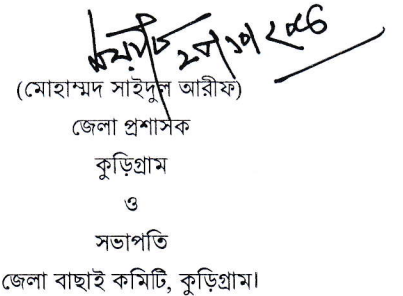 (মোহাম্মদ সাইদুল আরীফ)
জেলা প্রশাসক
কুড়িগ্রাম
ও
সভাপতি
জেলা বাছাই কমিটি, কুড়িগ্রাম।